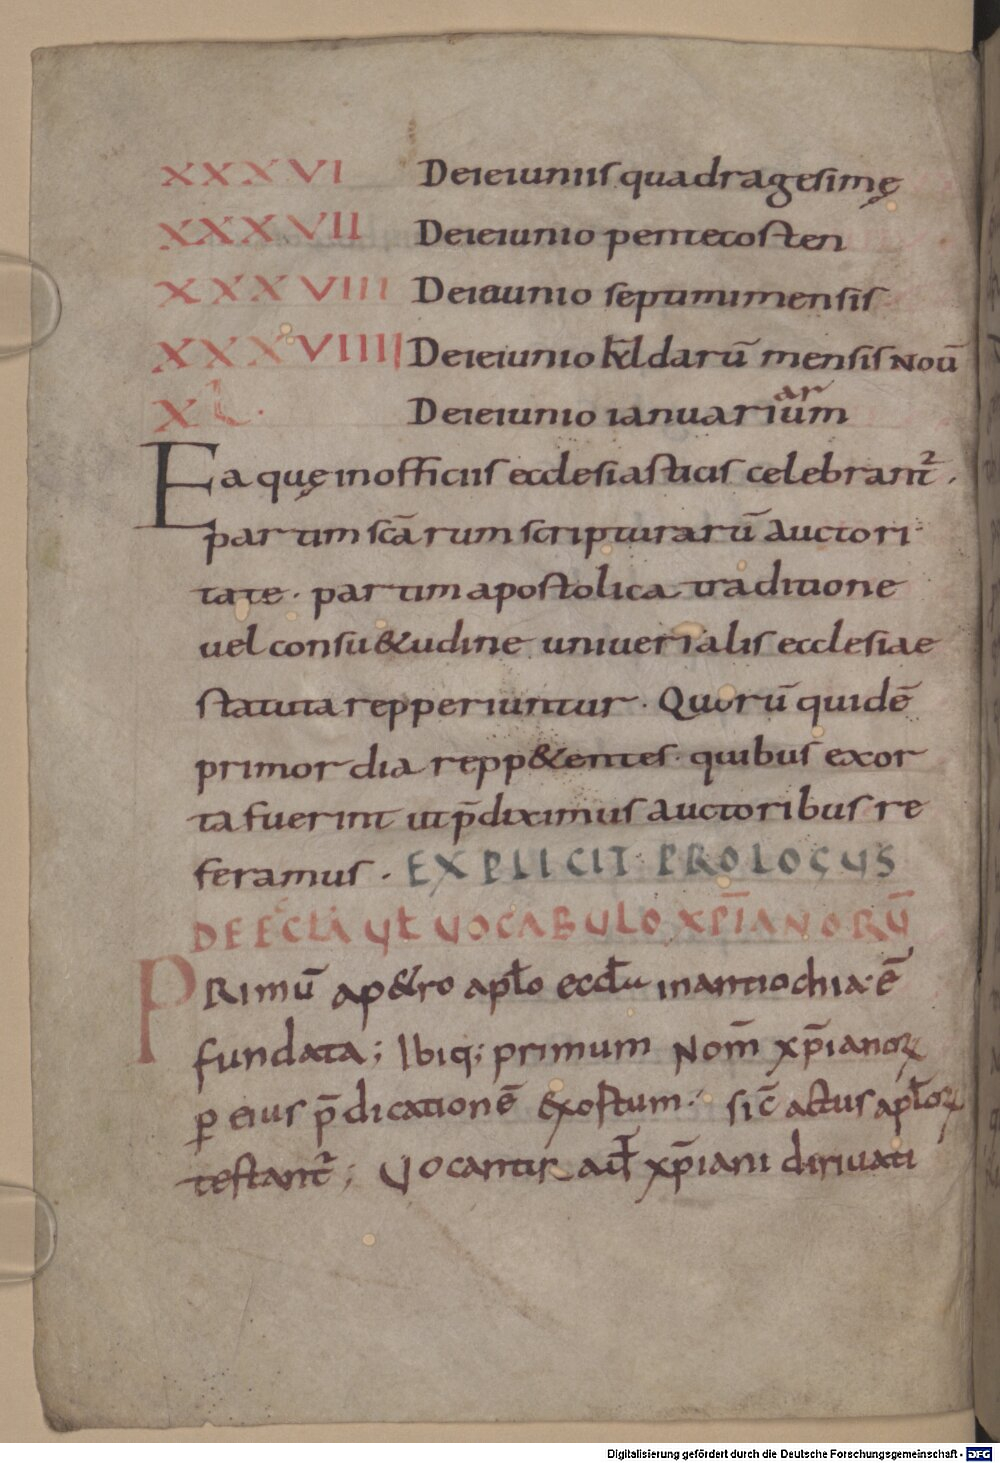 XXXVI Deieiuniis quadragesimę
XXXVII Deieiunio pentecosten
XXXVIII Deieiunio septimimensis
XXXVIIII Deieiunio kłdarū mensis Nou̅
XL. Deieiunio ianuariarum
Ea quę inofficiis ecclesiasticis celebrant².
partim scārum scripturarū auctori
tate. partim apostolica traditione
uel consu&udine uniuersalis ecclesiae
statuta repperiuntur. Quorū quidē
primordia repp&entes. quibus exor
ta fuerint ut p̄diximus auctoribus re
feramus. EXPLICIT PROLOGUS
DE ECLĀ UŁ UOCABULO XP̅IANORŪ
PRimū ap&ro apło eccła inantiochia. ē
fundata; Ibiq; primum Nom̄ xp̅ianoꝝ
ꝑ eius p̄dicationē exostum. sic̄ actus apłoꝝ
testant²; Uocantur aut̄ xp̅iani diriuati
Digitalisierung gefördert durch die Deutsche Forschungsgemeinschaft - DFG